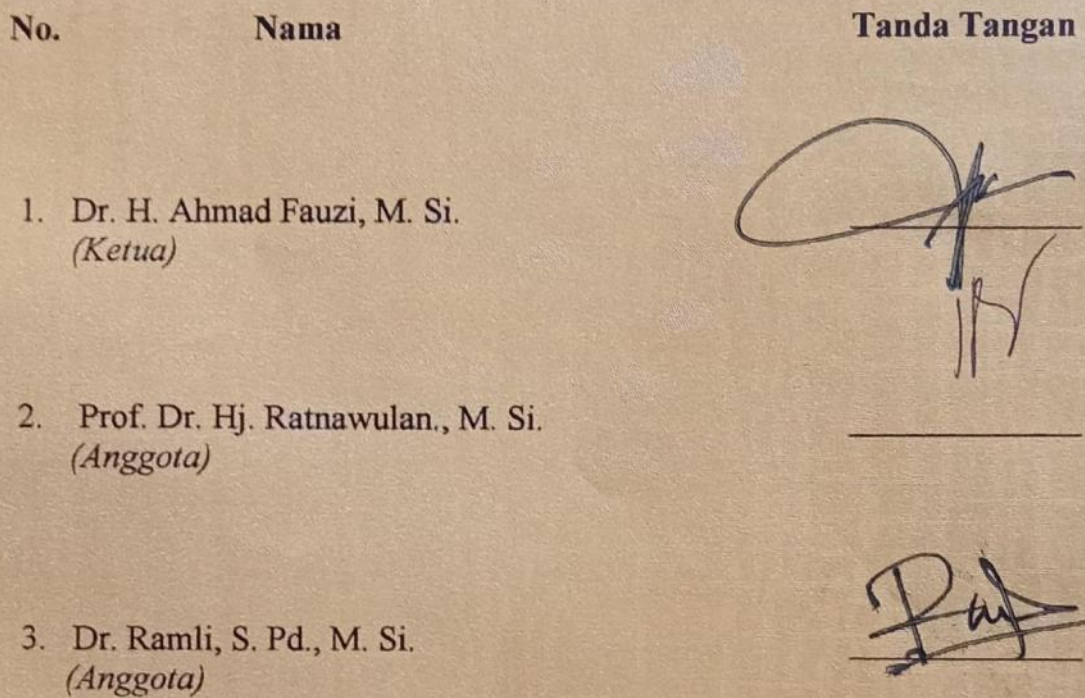 No. Nama Tanda Tangan
1. Dr. H. Ahmad Fauzi, M. Si.
(Ketua)
2. Prof. Dr. Hj. Ratnawulan., M. Si.
(Anggota)
3. Dr. Ramli, S. Pd., M. Si.
(Anggota)